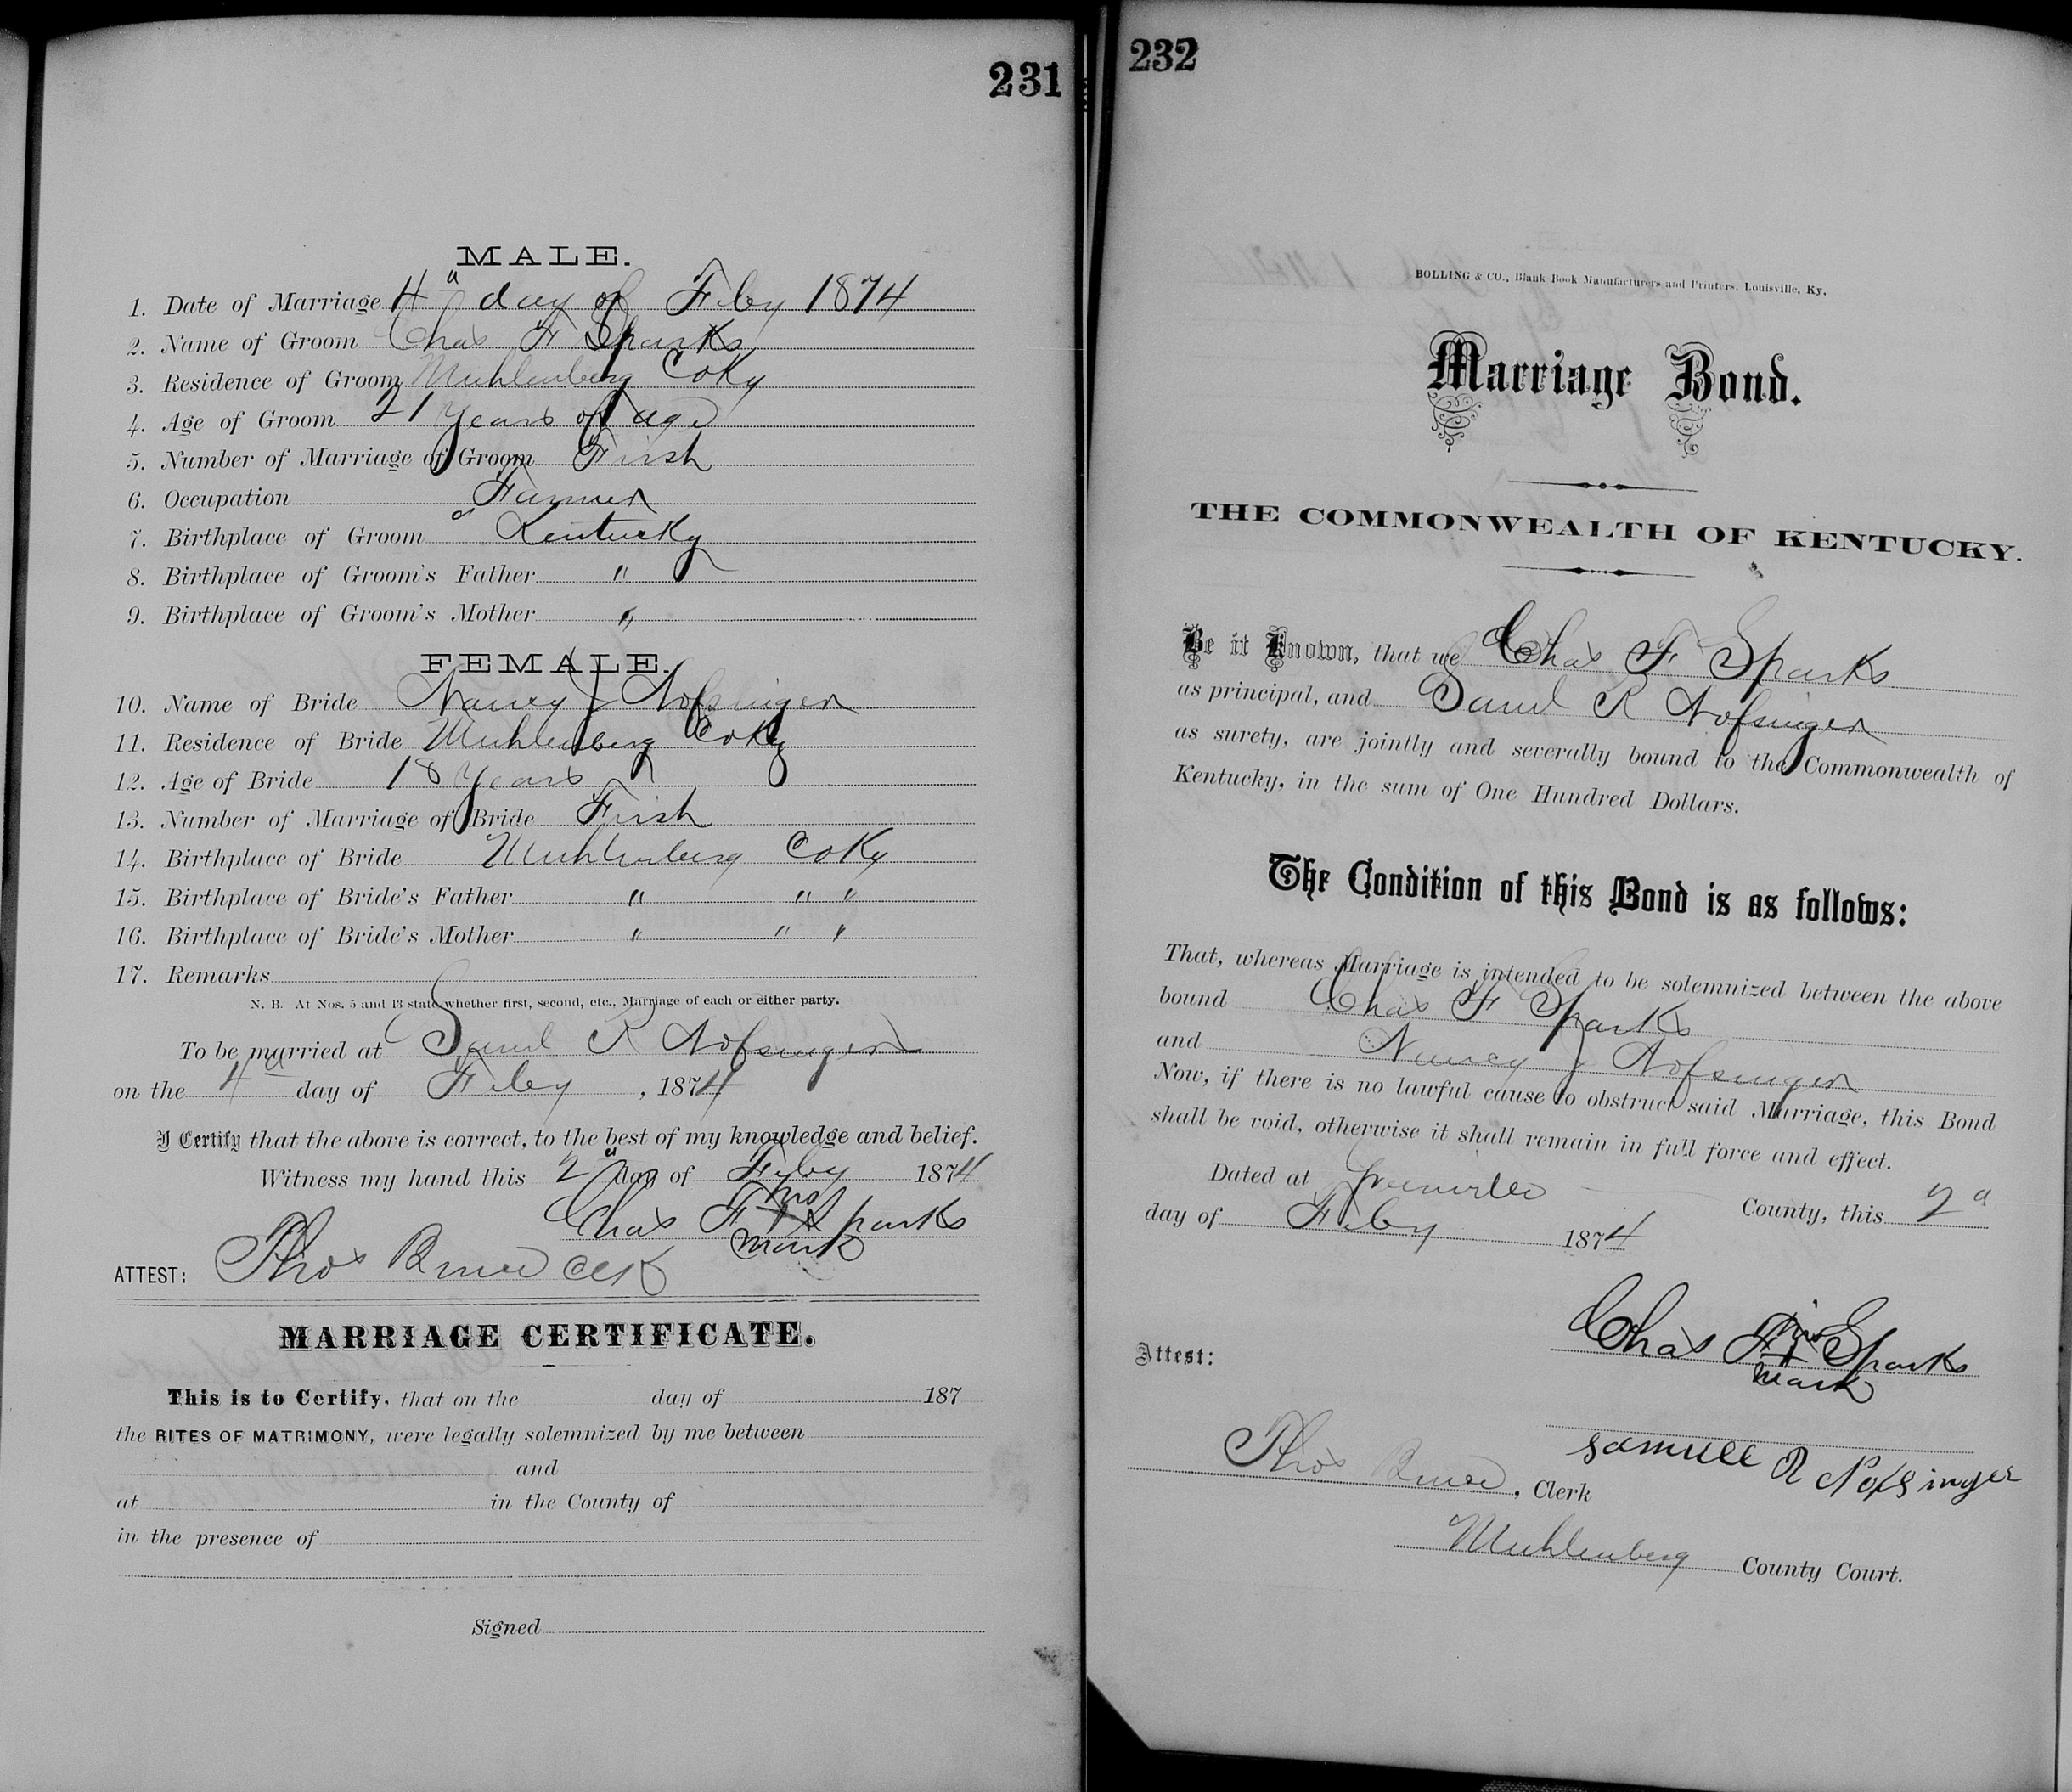 231
MALE.
1. Date of Marriage 4" day of Feby 1874
2. Name of Groom Chas F Sparks
3. Residence of Groom Muhlenberg Co Ky
4. Age of Groom 21 years of age
5. Number of Marriage of Groom First
6. Occupation Farmer
7. Birthplace of Groom Kentucky
8. Birthplace of Groom's Father "
9. Birthplace of Groom's Mother "
FEMALE.
10. Name of Bride Nancy J Nofsinger
11. Residence of Bride Muhlenberg Co Ky
12. Age of Bride 18 years
13. Number of Marriage of Bride First
14. Birthplace of Bride Muhlenberg Co Ky
15. Birthplace of Bride's Father " " "
16. Birthplace of Bride's Mother " " "
17. Remarks
N. B. At Nos. 5 and 13 state whether first, second, etc., Marriage of each or either party.
To be married at Saml R Nofsinger
on the 4" day of Feby, 1874
I Certify that the above is correct, to the best of my knowledge and belief.
Witness my hand this 2" day of Feby 1874
his
Chas F X Sparks
mark
ATTEST: Thos Bruce Clk
MARRIAGE CERTIFICATE.
This is to Certify, that on the day of 187
the RITES OF MATRIMONY, were legally solemnized by me between
and
at in the County of
in the presence of
Signed
232
BOLLING & CO., Blank Book Manufacturers and Printers, Louisville, Ky.
Marriage Bond.
THE COMMONWEALTH OF KENTUCKY.
Be it Known, that we Chas F Sparks
as principal, and Saml R Nofsinger
as surety, are jointly and severally bound to the Commonwealth of
Kentucky, in the sum of One Hundred Dollars.
The Condition of this Bond is as follows:
That, whereas Marriage is intended to be solemnized between the above
bound Chas F Sparks
and Nancy J Nofsinger
Now, if there is no lawful cause to obstruct said Marriage, this Bond
shall be void, otherwise it shall remain in full force and effect.
Dated at Greenville County, this 2d
day of Feby 1874
his
Chas F X Sparks
mark
Attest:
Samuel R Nofsinger
Thos Bruce, Clerk
Muhlenberg County Court.